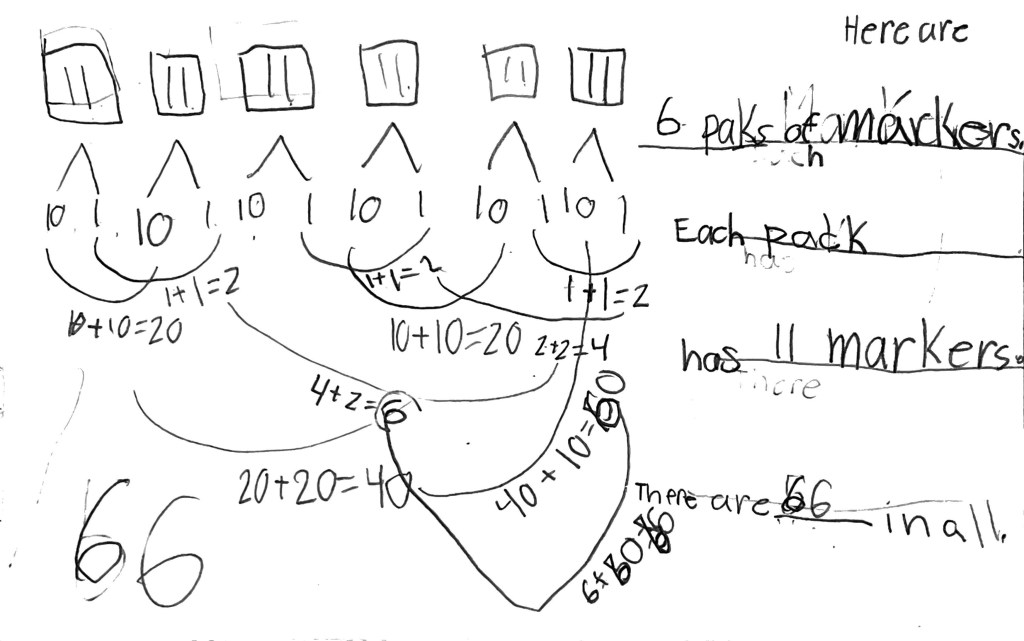 Here are
6 paks of markers.
Each pack
has 11 markers.
There are 66 in all.
11 11 11 11 11 11
10 1 10 1 10 1 10 1 10 1 10 1
1+1=2 1+1=2 1+1=2
10+10=20 10+10=20 2+2=4
4+2=6
20+20=40 40+10=60
66